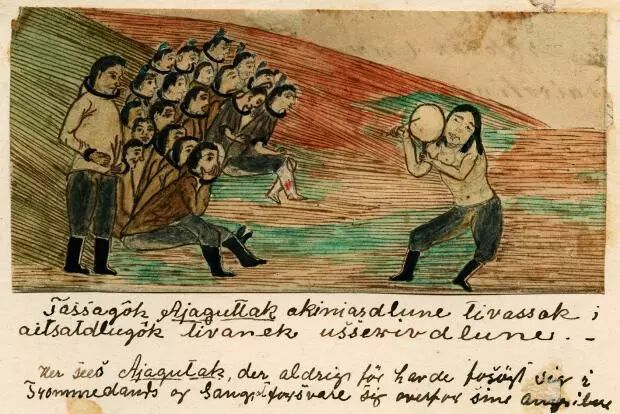 Tássagôk Ajaguttak akiniardlune tivassok i
aitsatdlugôk tivanek usserivdlune. -
Her sees Ajagutak, der aldrig før havde forsøgt sig i
Trommedands og Sang, forsvare sig overfor sine Angribere